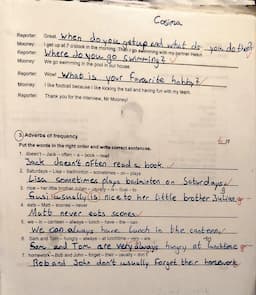 Cosima
Reporter: Great. When do you get up and what do you do then?
Mooney: I get up at 7 o'clock in the morning. Then I go swimming with my partner Helen.
Reporter: Where do you go swimming?
Mooney: We go swimming in the pool in our house.
Reporter: Wow! What is your favourite hobby?
Mooney: I like football because I like kicking the ball and having fun with my team.
Reporter: Thank you for the interview, Mr Mooney!
3 Adverbs of frequency
Put the words in the right order and write correct sentences.
1. doesn't – Jack – often – a – book – read
Jack doesn't often read a book.
2. Saturdays – Lisa – badminton – sometimes – on – plays
Lisa sometimes plays badminton on Saturdays
3. nice – her little brother – usually – is – to
Susi usually is nice to her little brother
4. eats – Matt – scones – never
Matt never eats scones
5. we – in – canteen – always – lunch – have – the – can
We can always have lunch in the canteen
6. Sam and Tom – hungry – always – at lunchtime – very – are
Sam and Tom are very always hungry at lunchtime
7. homework – Bob and John – forget – their – usually – don't
Bob and John don't usually forget their homework